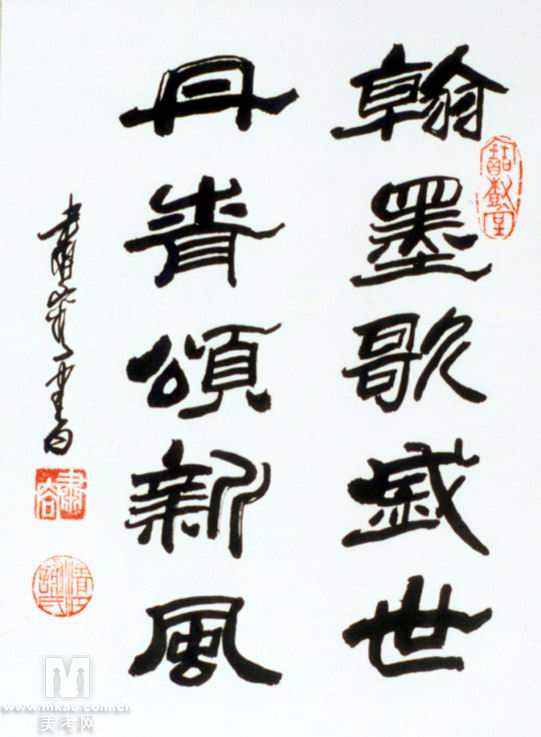 翰墨歌盛世
丹青頌新風
書
www.mkao.com.cn
美考网